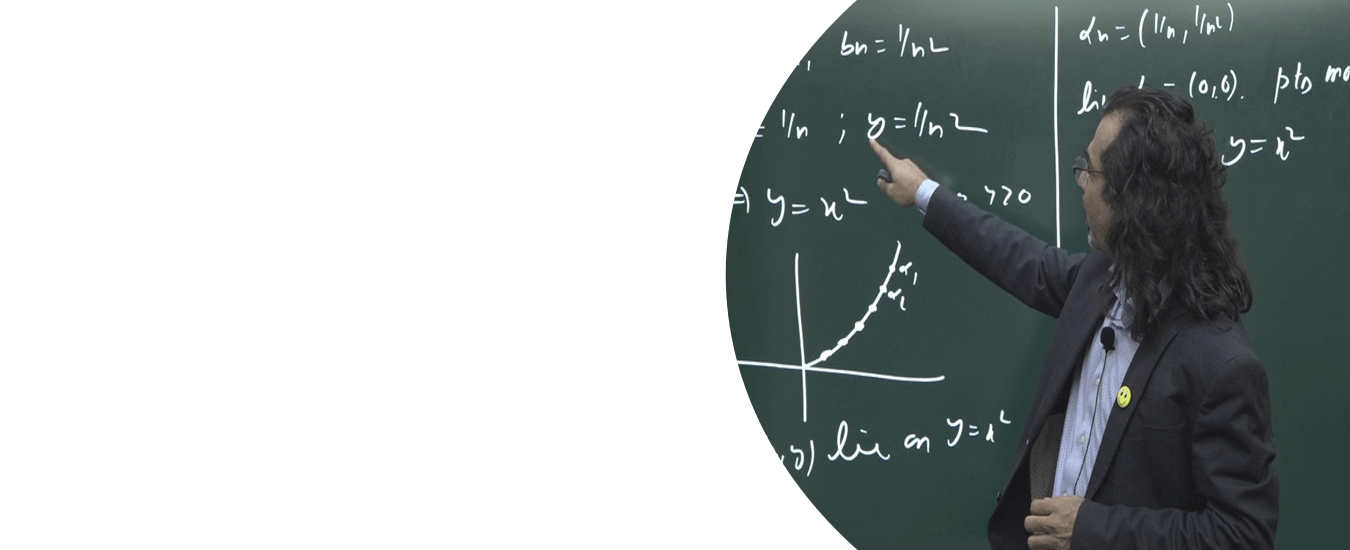 bn = 1/n²
= 1/n ; y = 1/n²
⇒ y = x² >0
α₁
α₂
,y) lie on y = x²
αn = (1/n, 1/n²)
= (0,0). pts
y = x²